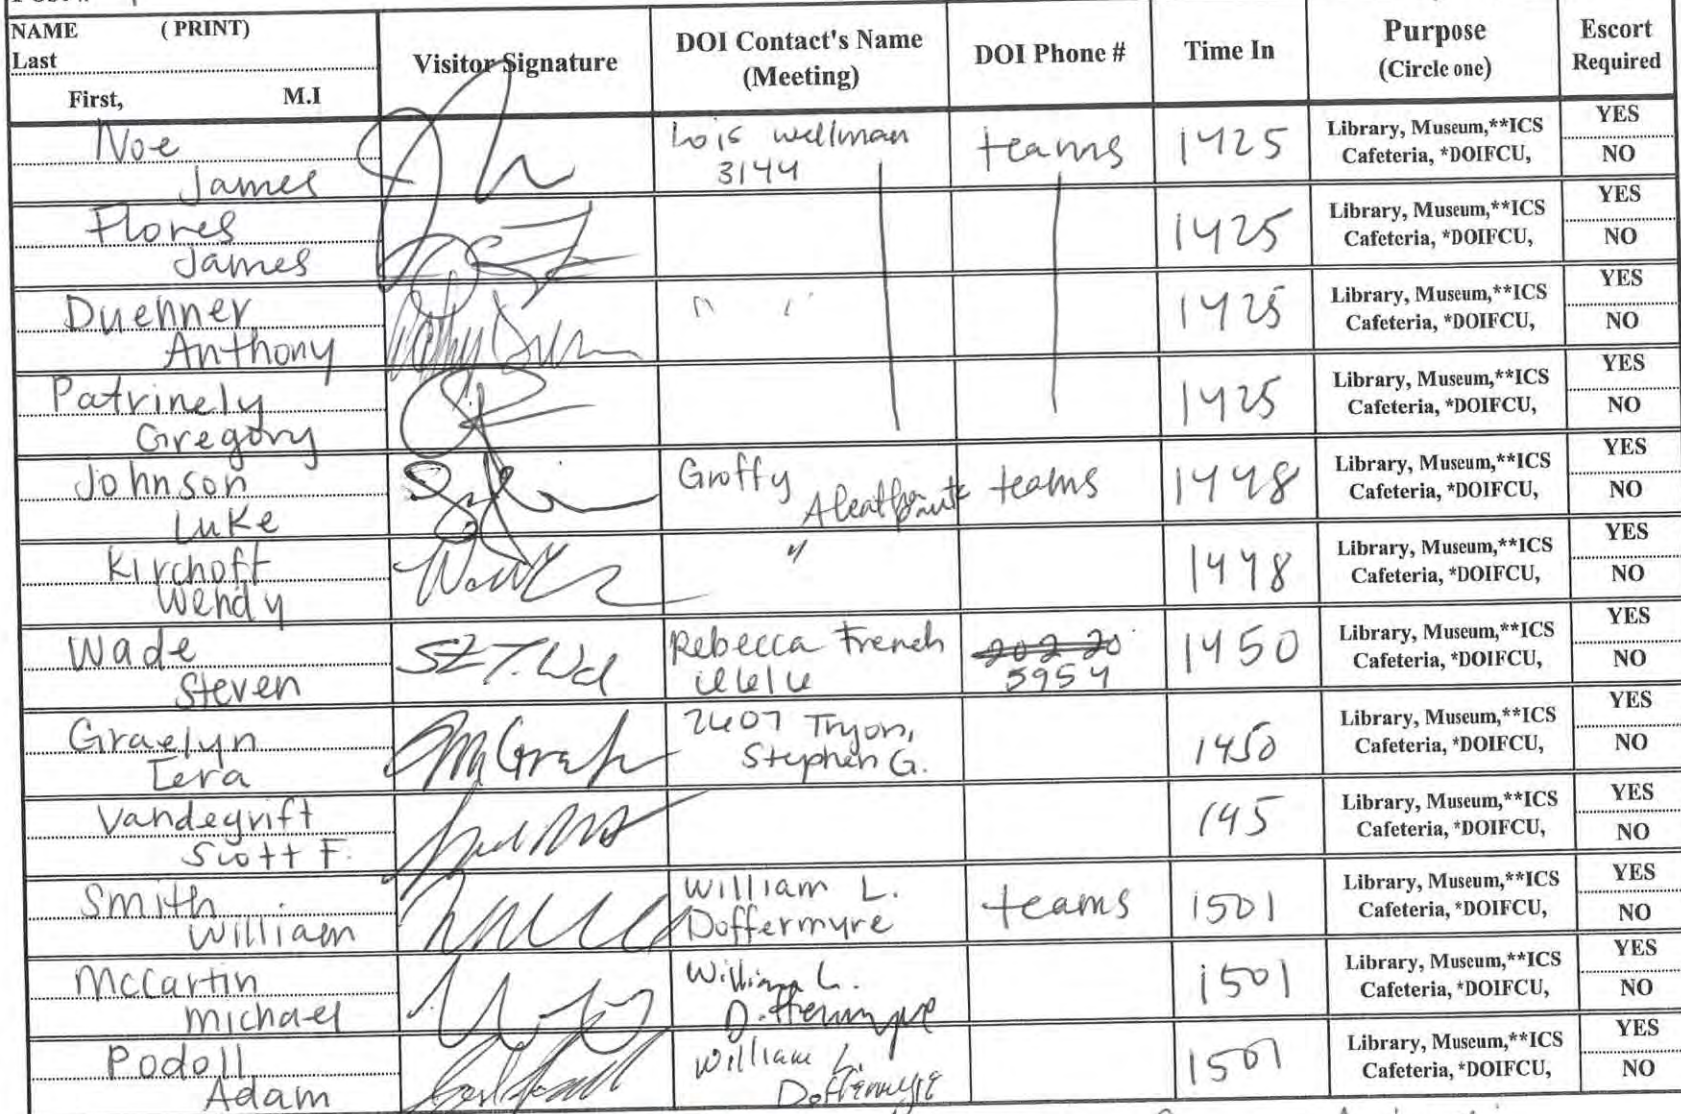 NAME ( PRINT)
Last
First, M.I
Visitor Signature
DOI Contact's Name
(Meeting)
DOI Phone #
Time In
Purpose
(Circle one)
Escort
Required
Noe
James
Lois Wellman
3144
teams
1425
Library, Museum,**ICS
Cafeteria, *DOIFCU,
YES
NO
Flores
James
1425
Library, Museum,**ICS
Cafeteria, *DOIFCU,
YES
NO
Duehner
Anthony
1425
Library, Museum,**ICS
Cafeteria, *DOIFCU,
YES
NO
Patrinely
Gregory
1425
Library, Museum,**ICS
Cafeteria, *DOIFCU,
YES
NO
Johnson
Luke
Groffy
teams
1448
Library, Museum,**ICS
Cafeteria, *DOIFCU,
YES
NO
Kirchoft
Wendy
"
1448
Library, Museum,**ICS
Cafeteria, *DOIFCU,
YES
NO
Wade
Steven
Rebecca French
5954
1450
Library, Museum,**ICS
Cafeteria, *DOIFCU,
YES
NO
Graelyn
Iera
2607 Tryon,
Stephen G.
1450
Library, Museum,**ICS
Cafeteria, *DOIFCU,
YES
NO
Vandegrift
Scott F.
145
Library, Museum,**ICS
Cafeteria, *DOIFCU,
YES
NO
Smith
William
William L.
Doffermyre
teams
1501
Library, Museum,**ICS
Cafeteria, *DOIFCU,
YES
NO
McCartin
Michael
William L.
Doffermyre
1501
Library, Museum,**ICS
Cafeteria, *DOIFCU,
YES
NO
Podoll
Adam
William L.
Doffermyre
1501
Library, Museum,**ICS
Cafeteria, *DOIFCU,
YES
NO